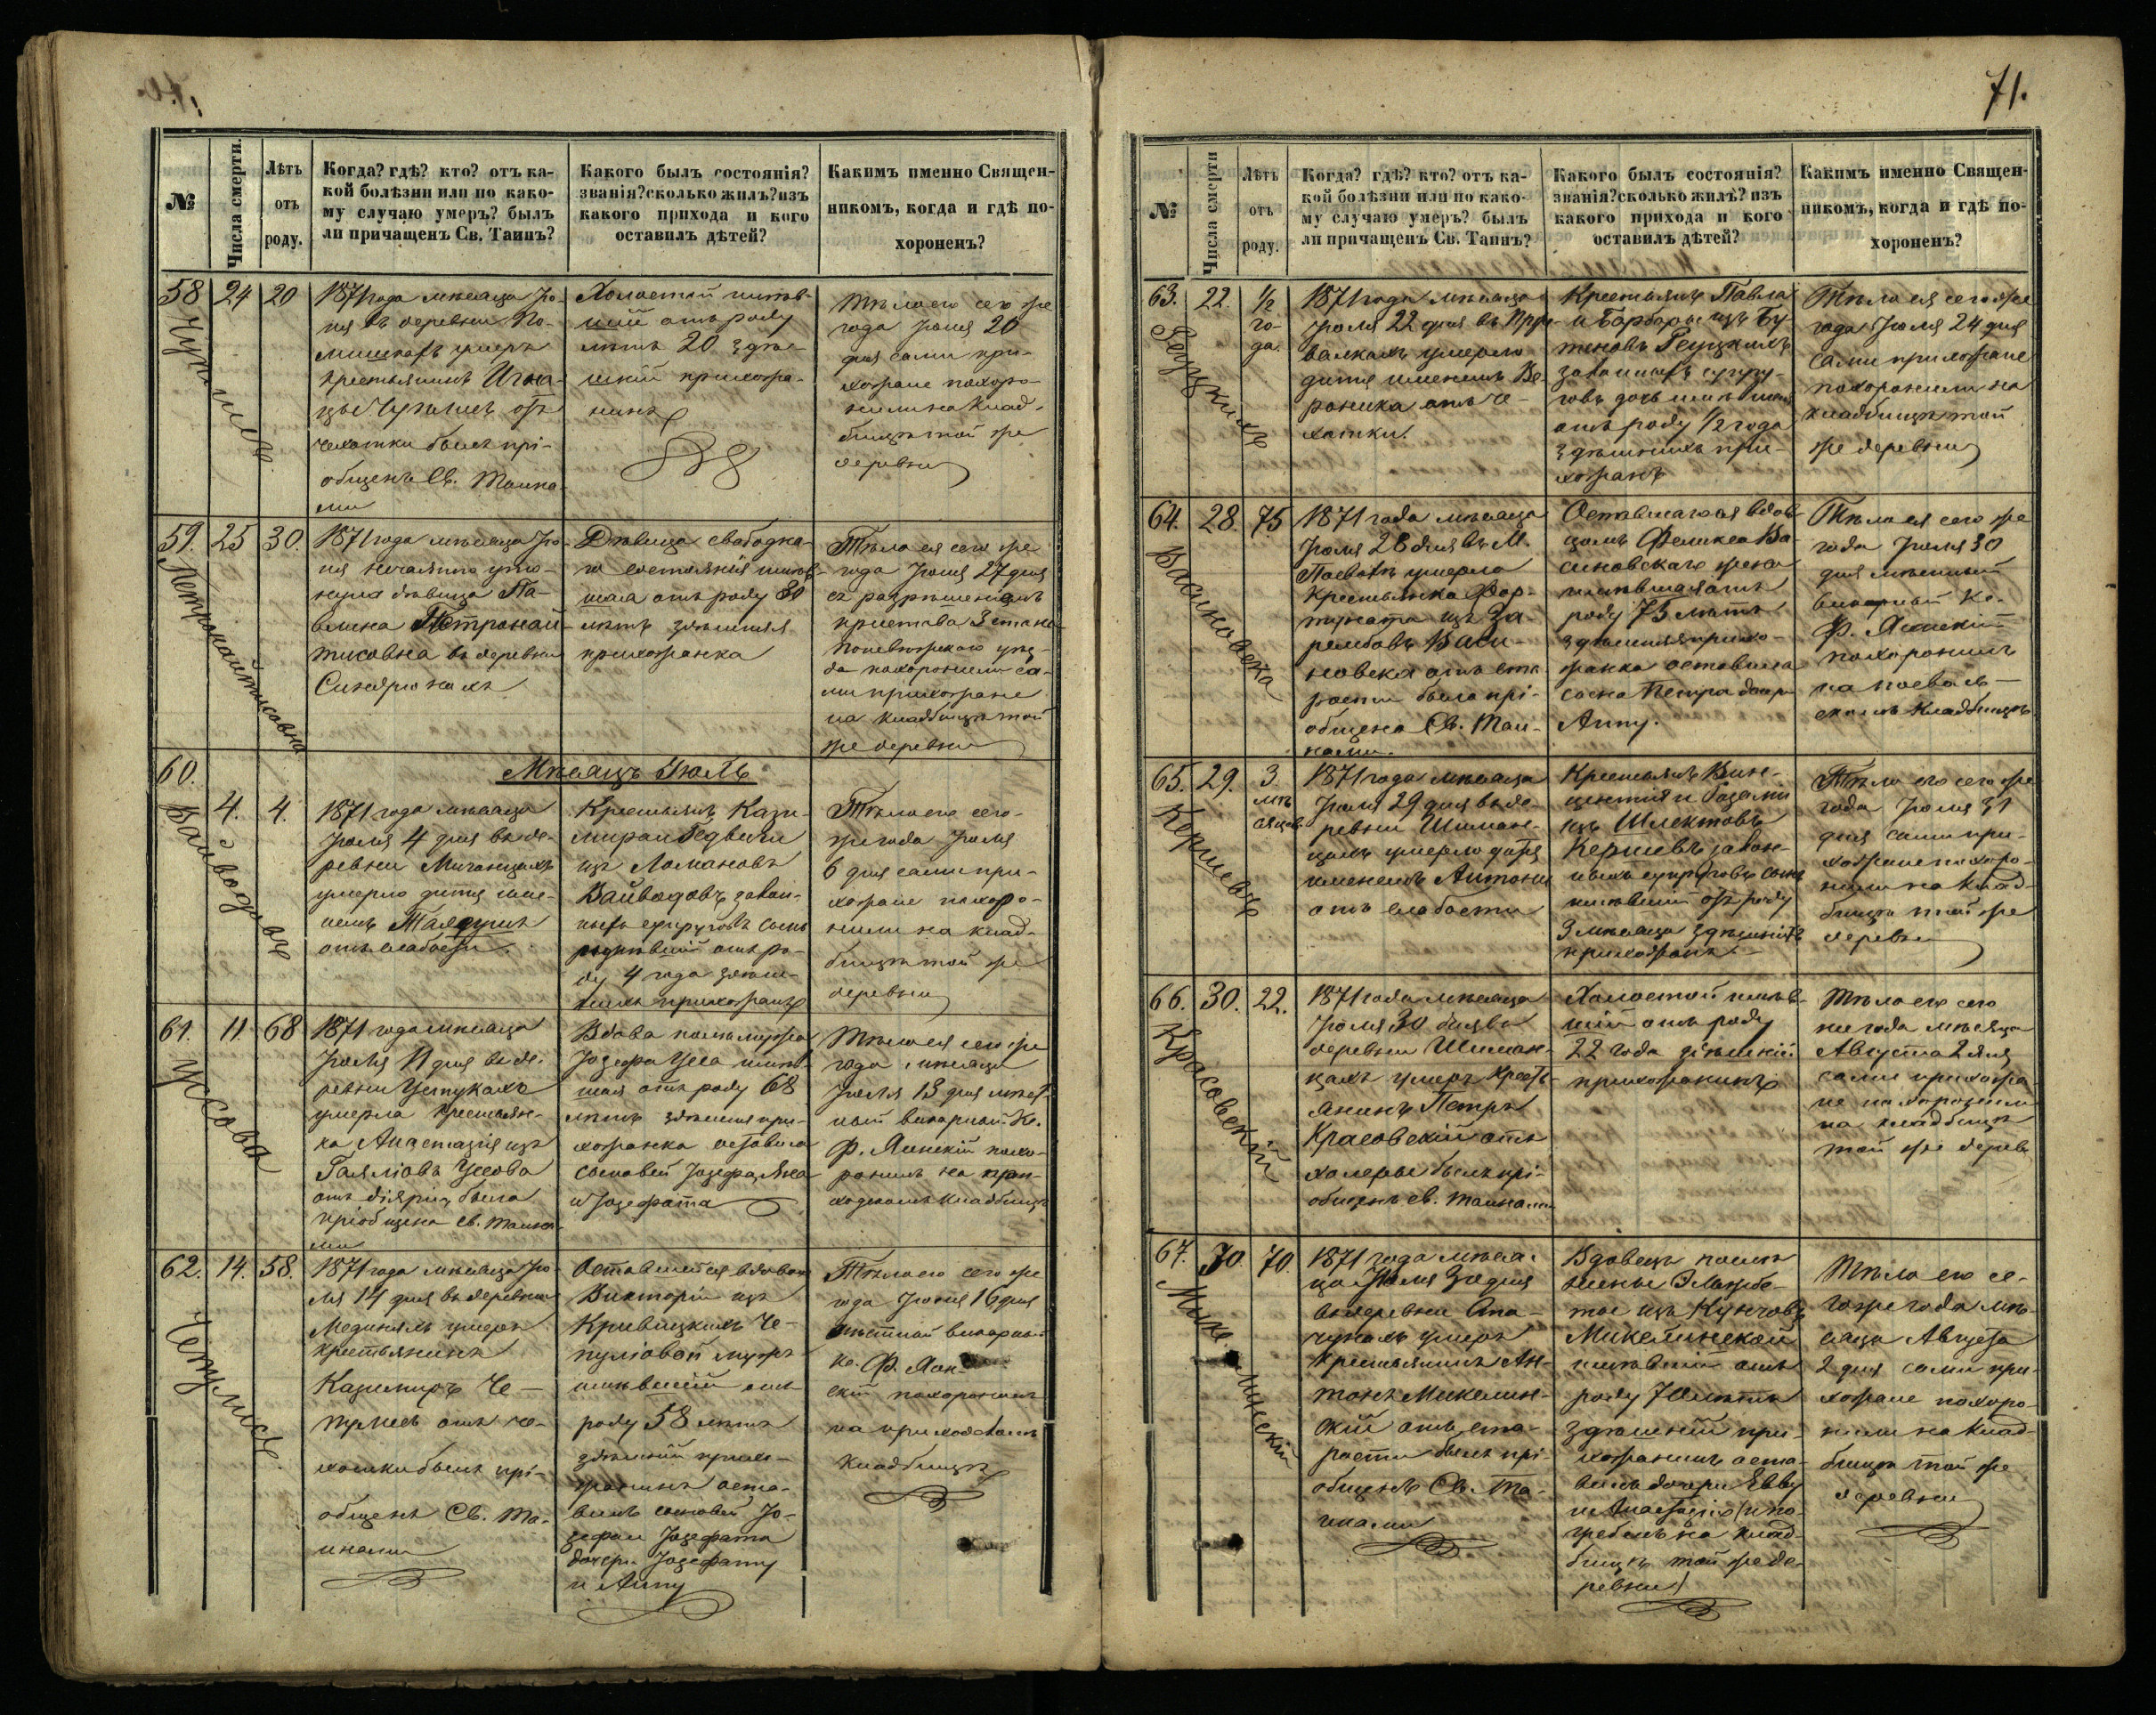 71.
№
Числа смерти.
Лѣтъ
отъ
роду.
Когда? гдѣ? кто? отъ ка-
кой болѣзни или по како-
му случаю умеръ? былъ
ли причащенъ Св. Таинъ?
Какого былъ состоянія?
званія? сколько жилъ? изъ
какого прихода и кого
оставилъ дѣтей?
Какимъ именно Священ-
никомъ, когда и гдѣ по-
хороненъ?
58
24
20
1871 года мѣсяца Iю-
ня въ деревни По-
умеръ
крестьянинъ Игна-
цы отъ
чехотки былъ прі-
общенъ Св. Таина-
ми
Холостой живъ-
шій отъ роду
лѣтъ 20 здѣ-
шній прихожа-
нинъ
Тѣло его сего же
года Iюня 26
дня сами при-
хожане похоро-
нили на клад-
бищѣ той же
деревни
59.
25
30.
Петронайтисовна
1871 года мѣсяца Iю-
ня нечаянно уто-
нула дѣвица Па-
влина Петронай-
тисовна въ деревни
Дѣвица свабодна-
го состоянія живъ-
шая отъ роду 30
лѣтъ здѣшняя
прихожанка
Тѣло ея сего же
года Iюня 27 дня
съ разрѣшеніемъ
пристава 3 стана
Поневѣжскаго уѣз-
да похоронили са-
ми прихожане
на кладбищѣ той
же деревни
60.
Мѣсяцъ Iюль
4.
4.
Вайводовъ
1871 года мѣсяца
Iюля 4 дня въ де-
ревни
умерло дитя име-
немъ
отъ слабости.
Крестьянъ Кази-
мира и Едвиги
изъ Ломановъ
Вайводовъ закон-
ныхъ супруговъ сынъ
живъшій отъ ро-
ду 4 года здѣш-
нихъ прихожанъ
Тѣло его сего-
же года Iюля
6 дня сами при-
хожане похоро-
нили на клад-
бищѣ той же
деревни
61.
11
68
Усова
1871 года мѣсяца
Iюля 11 дня въ де-
ревни Устукахъ
умерла крестьян-
ка Анастазія изъ
Усова
отъ діяріи была
пріобщена Св. Таина-
ми
Вдова по мужѣ
Iозефа Уса живъ-
шая отъ роду 68
лѣтъ здѣшняя при-
хожанка оставила
сыновей Iозефа Яна
и Iозефата
Тѣло ея сего же
года мѣсяца
Iюля 13 дня мѣст-
ный викарный Кс.
Ф. Янскій похо-
ронилъ на при-
ходскомъ кладбищѣ
62.
14.
58.
Чепулисъ.
1871 года мѣсяца Iю-
ля 14 дня въ деревни
умеръ
крестьянинъ
Казимиръ Че-
пулисъ отъ че-
хотки былъ прі-
общенъ Св. Та-
инами
Оставшейся вдовою
Викторіи изъ
Кривицкихъ Че-
пулювой мужъ
живъшій отъ
роду 58 лѣтъ
здѣшній прихо-
жанинъ оста-
вилъ сыновей Iо-
зефа и Iозефата
дочери Iозефату
и Анну
Тѣло его сего же
года Iюля 16 дня
мѣстный викарный
кс. Ф. Ян-
скій похоронилъ
на приходскомъ
кладбищѣ
№
Числа смерти
Лѣтъ
отъ
роду.
Когда? гдѣ? кто? отъ ка-
кой болѣзни или по како-
му случаю умеръ? былъ
ли причащенъ Св. Таинъ?
Какого былъ состоянія?
званія? сколько жилъ? изъ
какого прихода и кого
оставилъ дѣтей?
Какимъ именно Священ-
никомъ, когда и гдѣ по-
хороненъ?
63.
22.
1/2
го-
да.
1871 года мѣсяца
Iюля 22 дня въ
умерло
дитя именемъ Ве-
роника отъ че-
хотки.
Крестьянъ Павла
и Барбары изъ Бу-
теновъ
законныхъ супру-
говъ дочь
отъ роду 1/2 года
здѣшнихъ при-
хожанъ
Тѣло ея сего же
года Iюля 24 дня
сами прихожане
похоронили на
кладбищѣ той
же деревни
64.
28.
75
Васиновска
1871 года мѣсяца
Iюля 28 дня въ М.
умерла
крестьянка Фор-
туната изъ За-
рембовъ Васи-
новска отъ ста-
рости была прі-
общена Св. Таи-
нами.
Оставшагося вдов-
цомъ Феликса Ва-
синовскаго жена
живъшая отъ
роду 75 лѣтъ
здѣшняя прихо-
жанка оставила
сына Петра дочь
Анну.
Тѣло ея сего же
года Iюля 30
дня мѣстный
викарный Кс.
Ф. Янскій
похоронилъ
на
скомъ кладбищѣ
65.
29.
3.
мѣ-
сяцевъ
1871 года мѣсяца
Iюля 29 дня въ де-
ревни Шиман-
цахъ умерло дитя
именемъ Антони
отъ слабости
Крестьянъ Вин-
центія и Розаліи
изъ
законн-
ыхъ супруговъ сынъ
живъшій отъ роду
3 мѣсяца здѣшнихъ
прихожанъ.
Тѣло его сего же
года Iюля 31
дня сами при-
хожане похоро-
нили на клад-
бищѣ той же
деревни
66.
30.
22.
Красовскій
1871 года мѣсяца
Iюля 30 дня въ
деревни Шиман-
цахъ умеръ кресть-
янинъ Петръ
Красовскій отъ
холеры былъ прі-
общенъ Св. Таинами
Холостой живъ-
шій отъ роду
22 года здѣшній
прихожанинъ
Тѣло его сего
же года мѣсяца
Августа 2 дня
сами прихожа-
не похоронили
на кладбищѣ
той же дерев.
67.
30.
70.
1871 года мѣся-
ца Iюля 30 дня
въ деревни Ста-
чунахъ умеръ
крестьянинъ Ан-
тонъ Микелин-
скій отъ ста-
рости былъ прі-
общенъ Св. Та-
инами
Вдовецъ послѣ
жены Эльжбе-
ты изъ
Микелинской
живъшій отъ
роду 70 лѣтъ
здѣшній при-
хожанинъ оста-
вилъ дочери Евву
и Анастазію (и по-
гребенъ на клад-
бищѣ той же де-
ревни)
Тѣло его се-
го же года мѣ-
сяца Августа
2 дня сами при-
хожане похоро-
нили на клад-
бищѣ той же
деревни